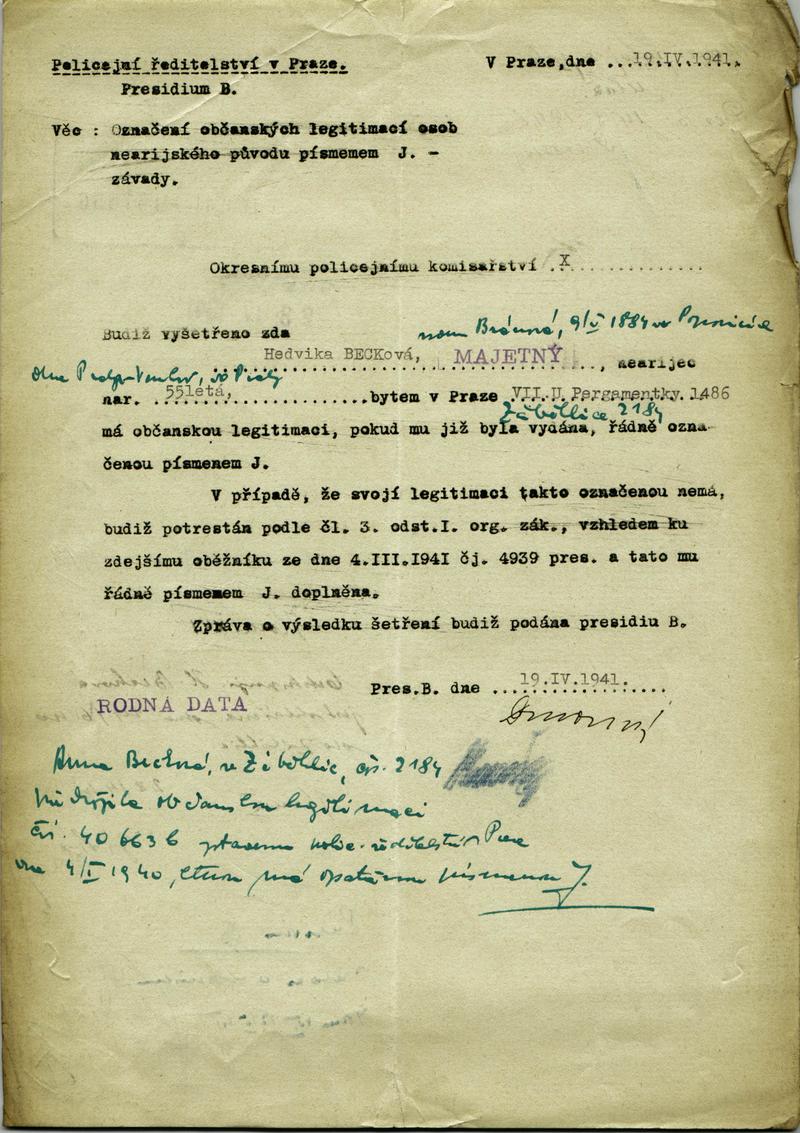 Policejní ředitelství v Praze.
V Praze,dne ...19.IV.1941.
Presidium B.
Věc : Označení občanských legitimací osob
nearijského původu písmemem J. -
závady.
Okresnímu policejnímu komisařství .X..............
Budiž vyšetřeno zda
9/V 1884 v
Hedvika BECKová, MAJETNÝ ..., nearijec
nar. .55letá,...............bytem v Praze VII.U Pergamentky. 1486
Záběhlice 2184
má občanskou legitimaci, pokud mu již byla vydána, řádně ozna-
čenou písmenem J.
V případě, že svojí legitimaci takto označenou nemá,
budiž potrestán podle čl. 3. odst.I. org. zák., vzhledem ku
zdejšímu oběžníku ze dne 4.III.1941 čj. 4939 pres. a tato mu
řádně písmenem J. doplněna.
Zpráva o výsledku šetření budiž podána presidiu B.
Pres.B. dne ..19.IV.1941.......
RODNÁ DATA
Anna v čp. 2184
občanskou legitimaci
čís. 406636
dne 4/I 1940, písmenou J.